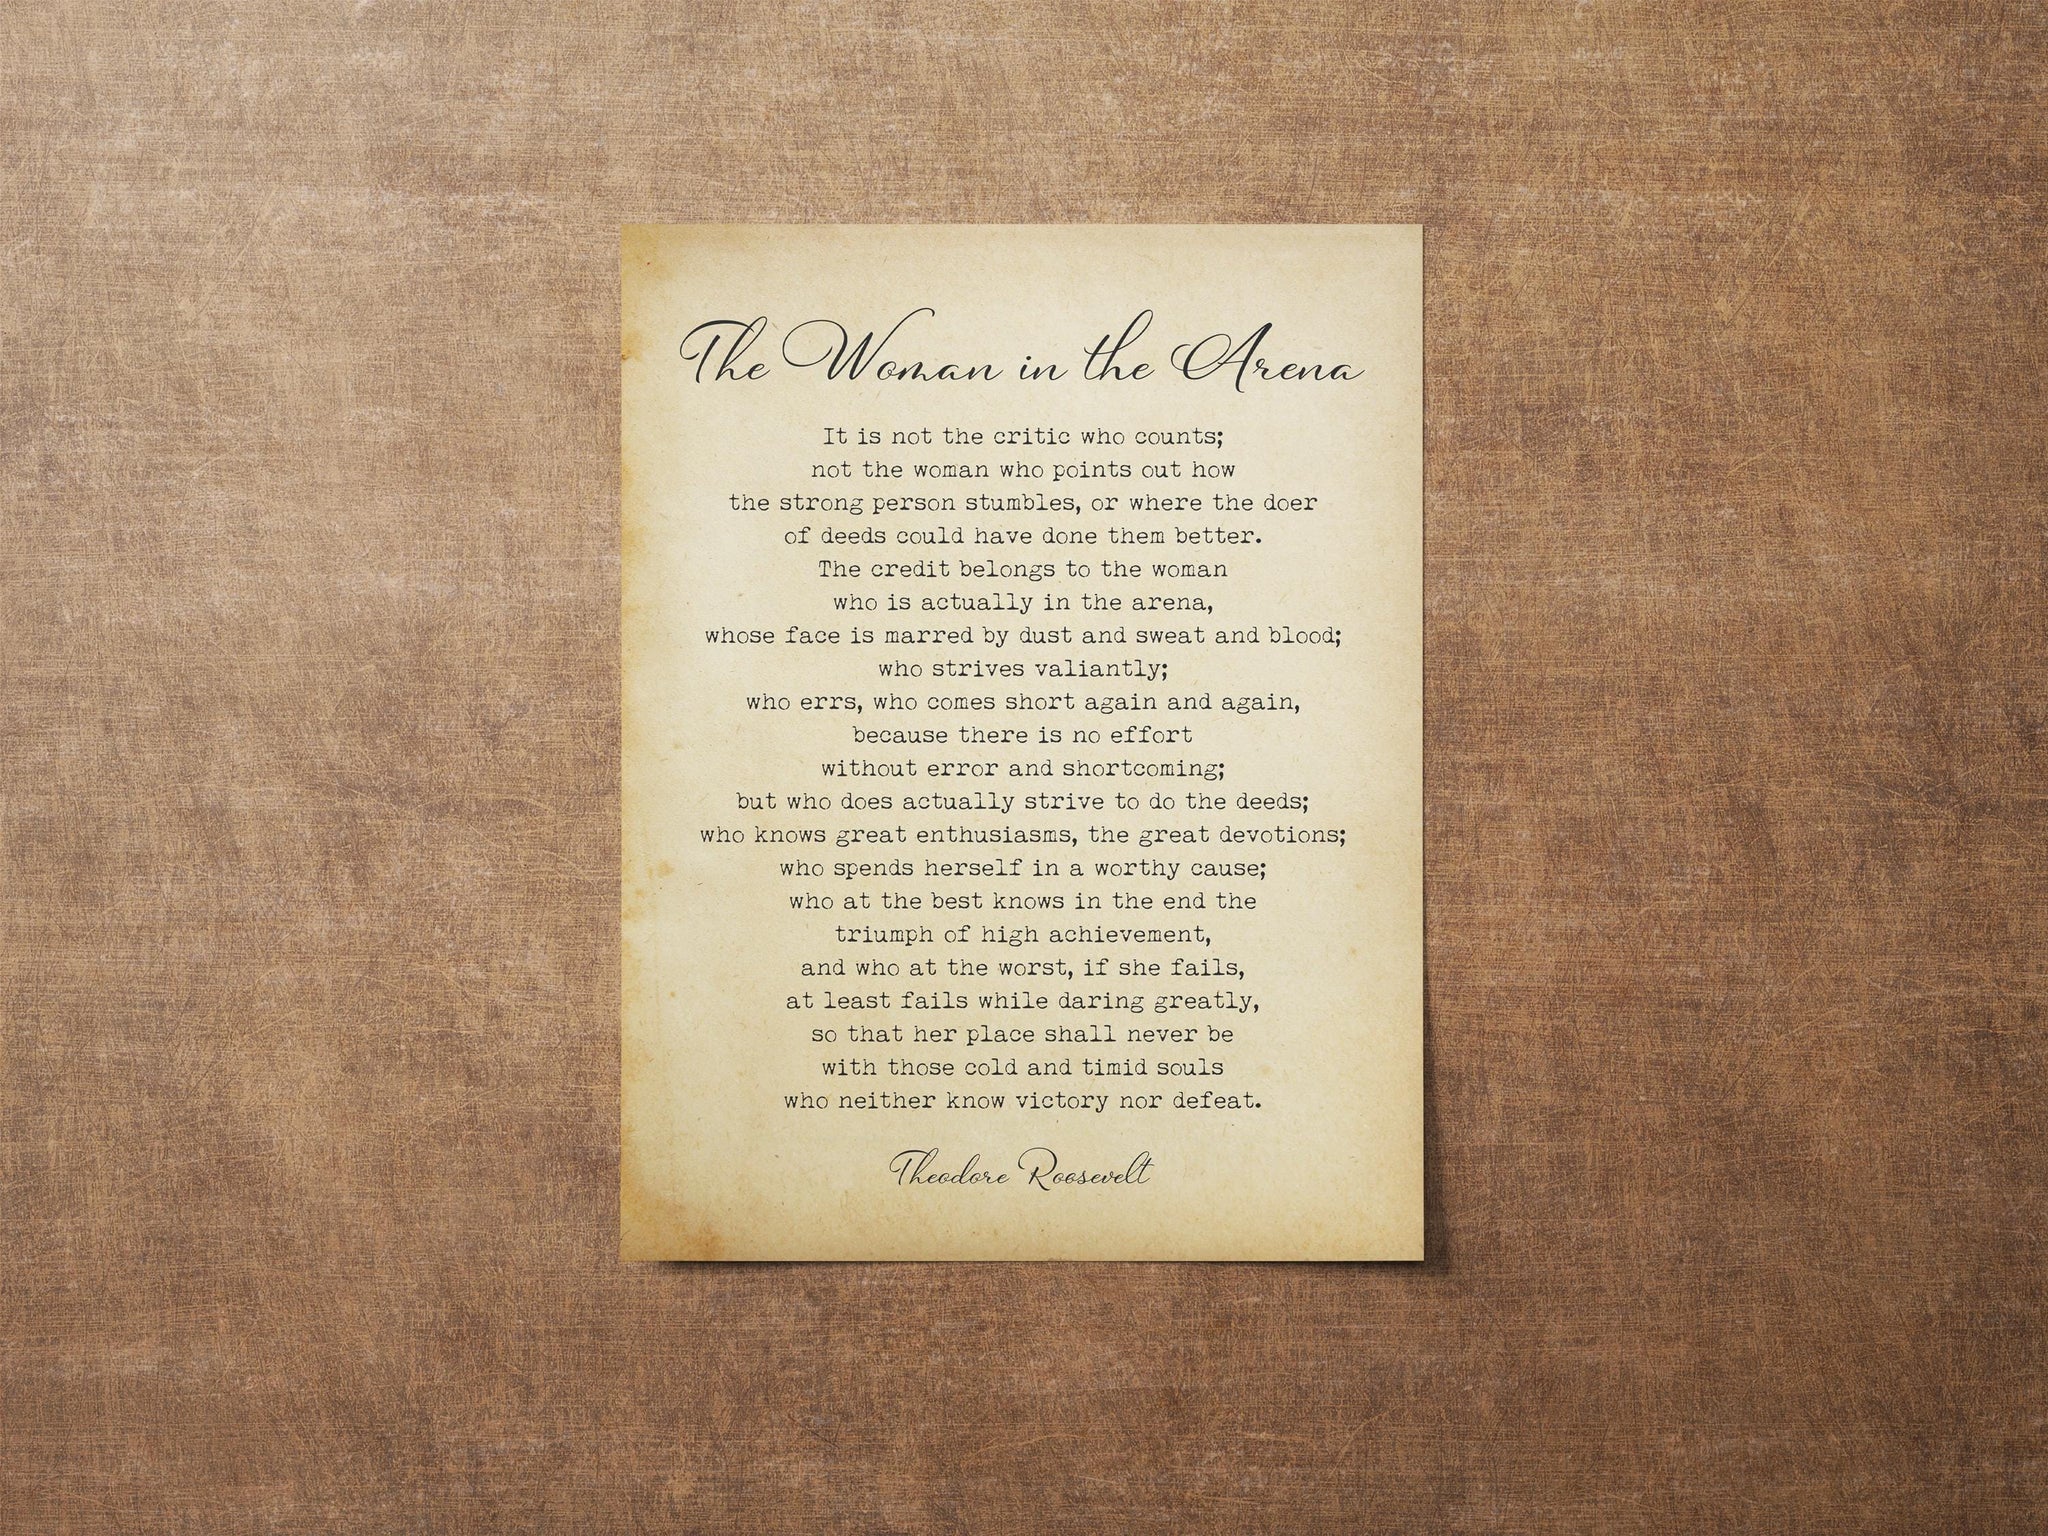 The Woman in the Arena
It is not the critic who counts;
not the woman who points out how
the strong person stumbles, or where the doer
of deeds could have done them better.
The credit belongs to the woman
who is actually in the arena,
whose face is marred by dust and sweat and blood;
who strives valiantly;
who errs, who comes short again and again,
because there is no effort
without error and shortcoming;
but who does actually strive to do the deeds;
who knows great enthusiasms, the great devotions;
who spends herself in a worthy cause;
who at the best knows in the end the
triumph of high achievement,
and who at the worst, if she fails,
at least fails while daring greatly,
so that her place shall never be
with those cold and timid souls
who neither know victory nor defeat.
Theodore Roosevelt